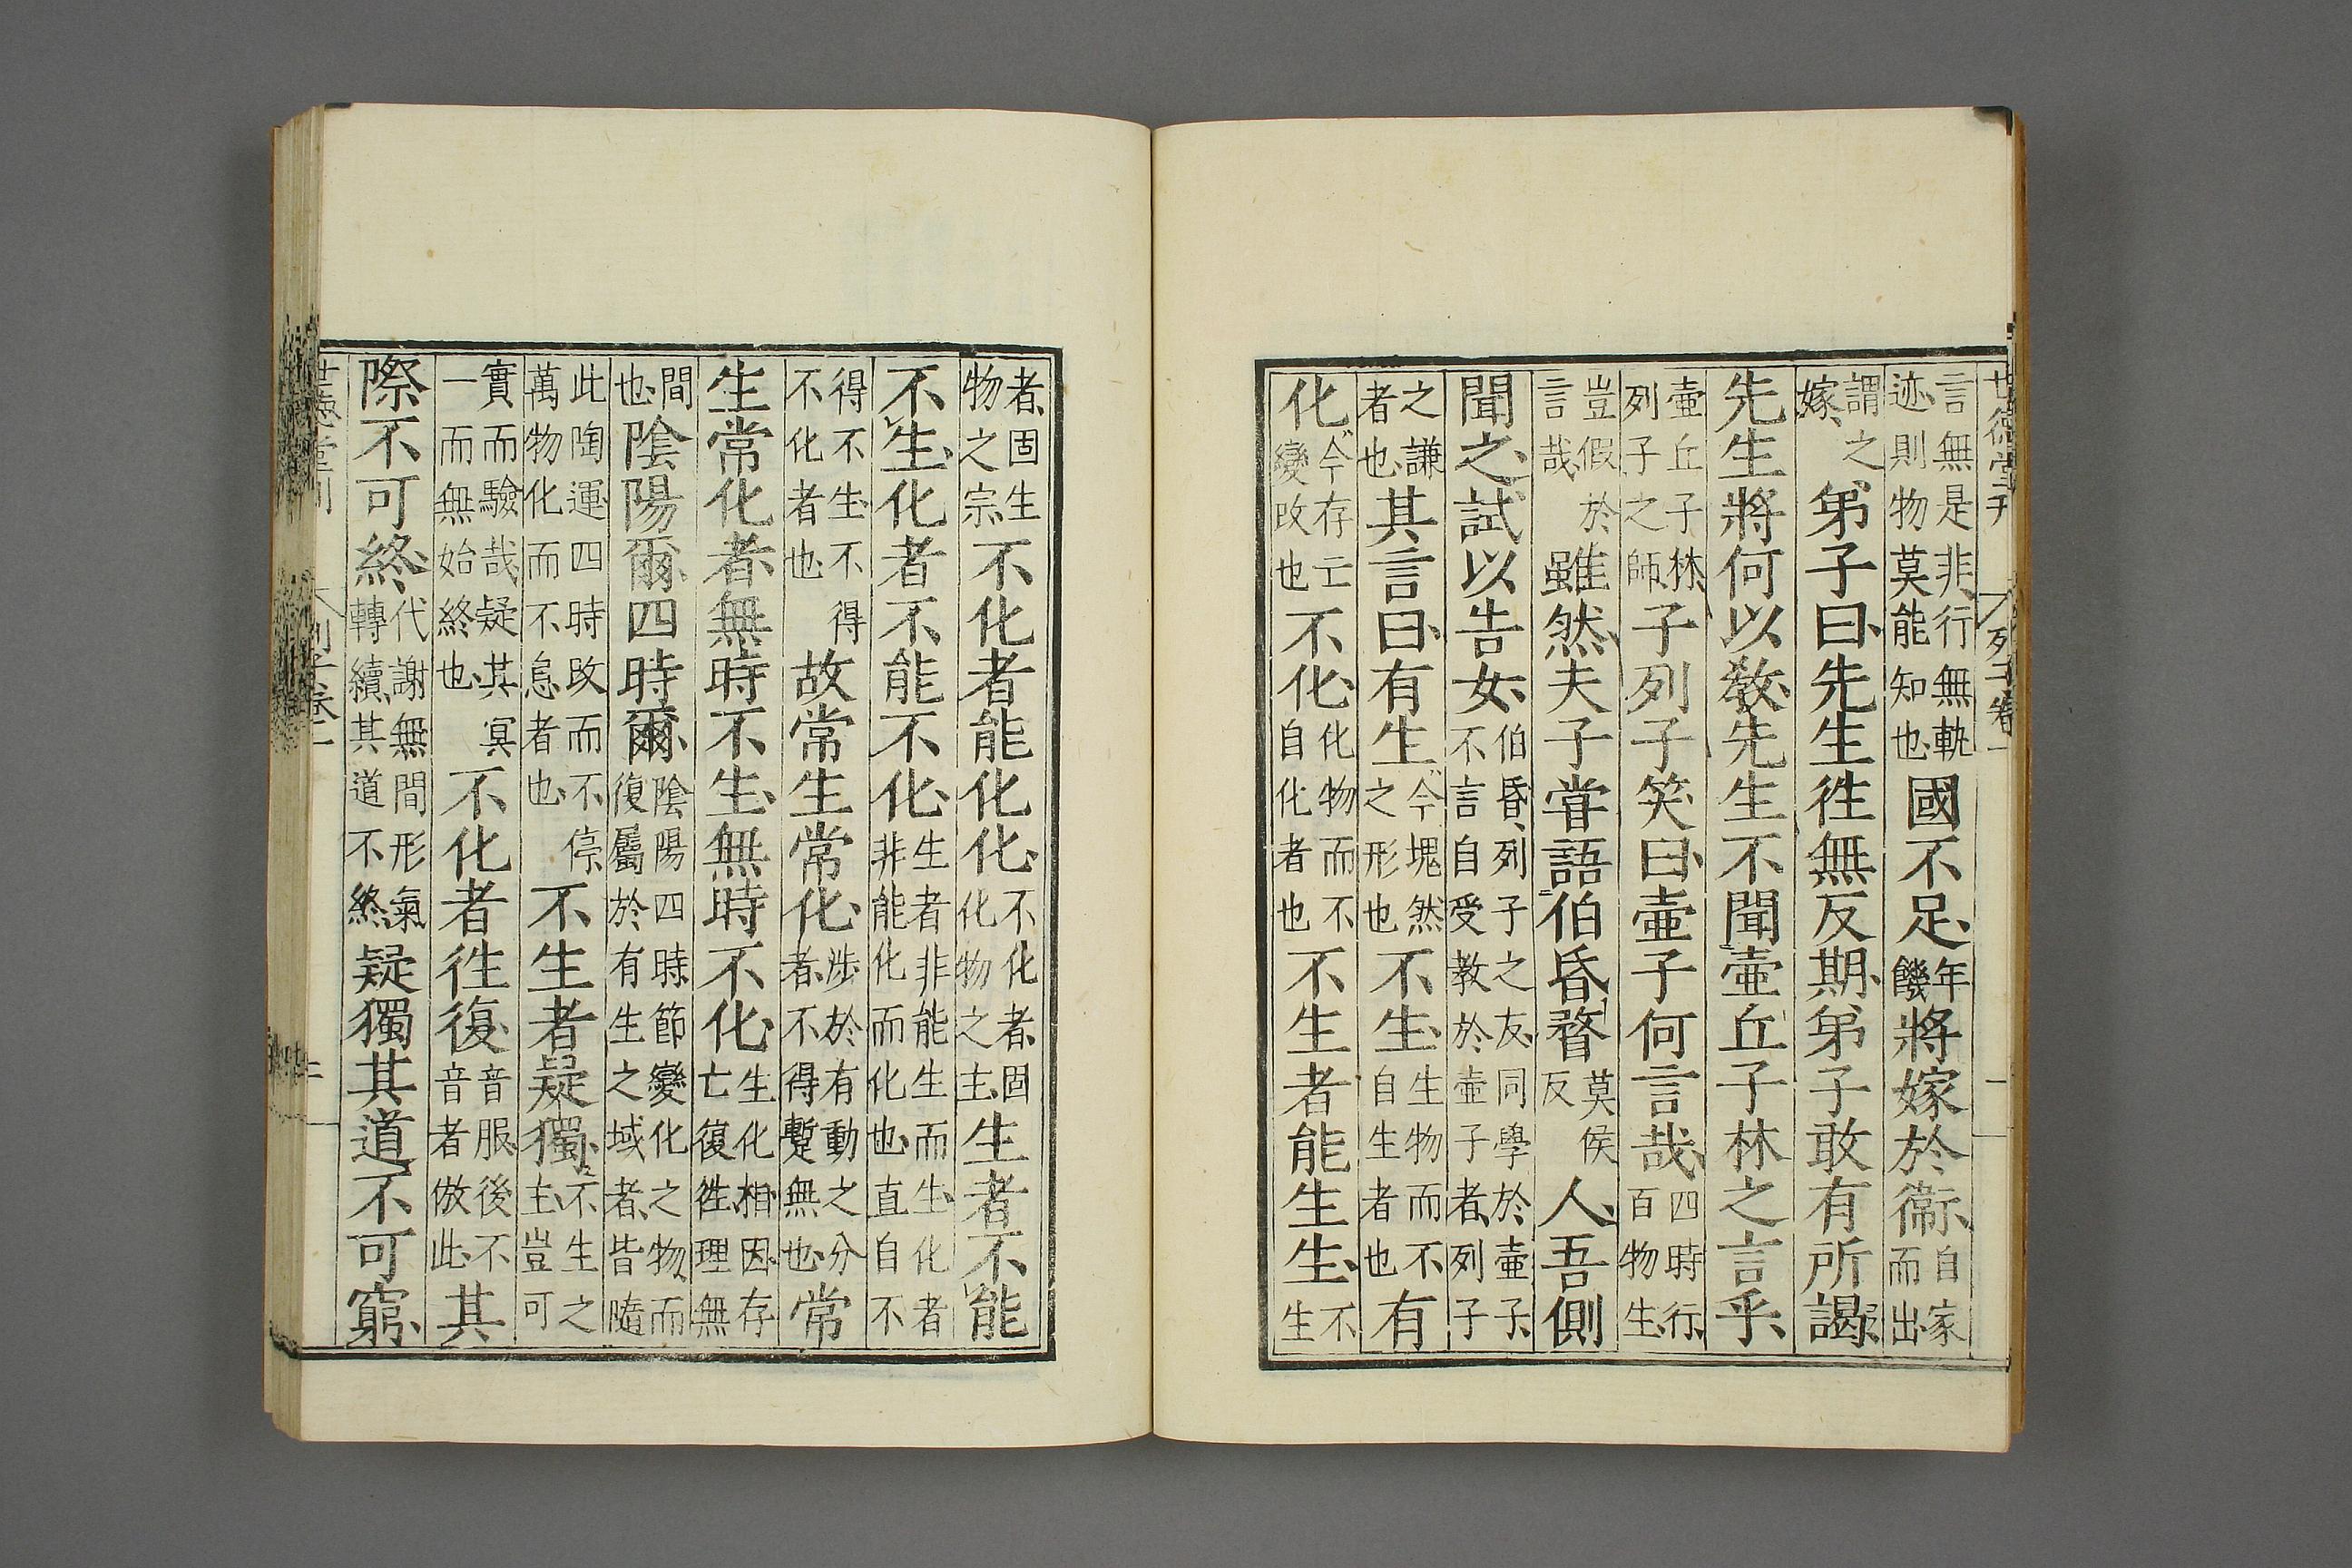 世德堂刊
列子卷一
一
言無是非行無軌迹則物莫能知也國不足年饑將嫁於衞自家而出
謂之嫁弟子曰先生徃無反期弟子敢有所謁
先生將何以敎先生不聞壷丘子林之言乎
壷丘子林列子之師子列子笑曰壷子何言哉四時行百物生
豈假於言哉雖然夫子甞語伯昬瞀莫侯反人吾側
聞之試以告女伯昬列子之友同學於壷子不言自受教於壷子者列子
之謙者也其言曰有生今塊然之形也不生生物而不自生者也有
化今存亡變改也不化化物而不自化者也不生者能生生不生
者固生物之宗不化者能化化不化者固化物之主生者不能
不生化者不能不化生者非能生而生化者非能化而化也直自不
得不生不得不化者也故常生常化涉於有動之分者不得蹔無也常
生常化者無時不生無時不化生化相因存亡復徃理無
間也陰陽爾四時爾陰陽四時節變化之物而復屬於有生之域者皆隨
此陶運四時改而不停萬物化而不怠者也不生者疑獨不生之主豈可
實而驗哉疑其冥一而無始終也不化者徃復音服後不音者倣此其
際不可終代謝無間形氣轉續其道不終疑獨其道不可窮
世德堂刊
列子卷一
二